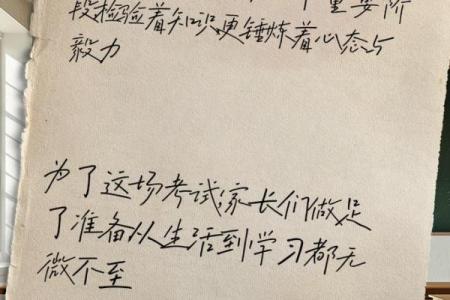 重要阶
段检验着知识更锤炼着心态与
毅力
为了这场考试家长们做足
了准备从生活到学习都无
微不至